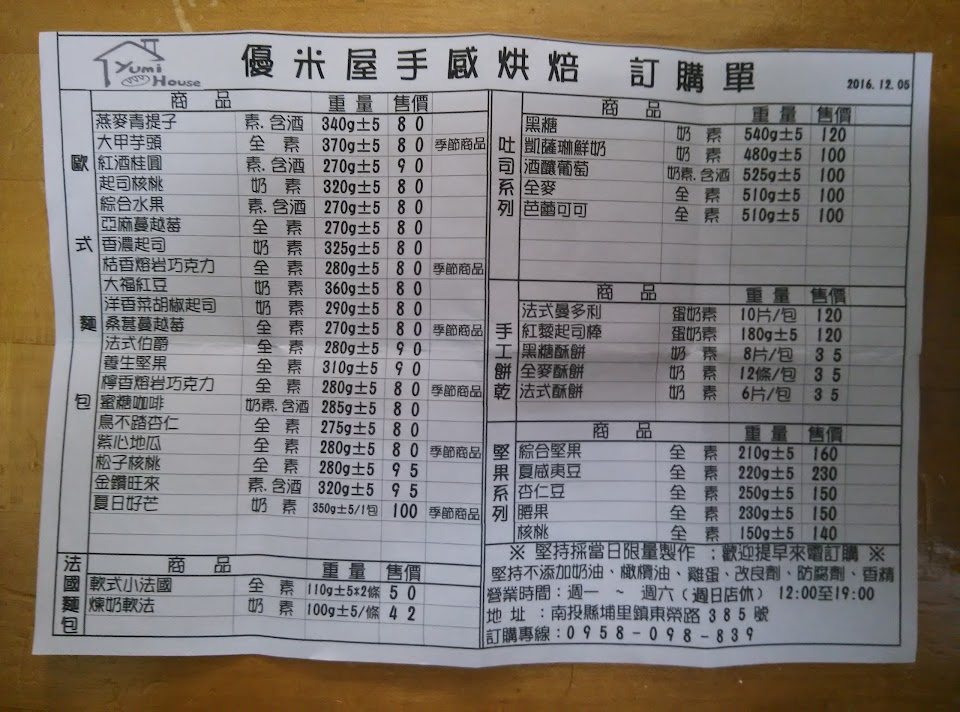 Yumi House
優米屋手感烘焙 訂購單
2016.12.05
歐式麵包
商品 重量 售價
燕麥青提子 素.含酒 340g±5 80
大甲芋頭 全素 370g±5 80 季節商品
紅酒桂圓 素.含酒 270g±5 90
起司核桃 奶素 320g±5 80
綜合水果 素.含酒 270g±5 80
亞麻蔓越莓 全素 270g±5 80
香濃起司 奶素 325g±5 80
桔香熔岩巧克力 全素 280g±5 80 季節商品
大福紅豆 奶素 360g±5 80
洋香菜胡椒起司 奶素 290g±5 80
桑葚蔓越莓 全素 270g±5 80 季節商品
法式伯爵 全素 280g±5 90
養生堅果 全素 310g±5 90
檸香熔岩巧克力 全素 280g±5 80 季節商品
蜜糖咖啡 奶素.含酒 285g±5 80
鳥不踏杏仁 全素 275g±5 80
紫心地瓜 全素 280g±5 80 季節商品
松子核桃 全素 280g±5 95
金鑽旺來 素.含酒 320g±5 95
夏日好芒 奶素 350g±5/1包 100 季節商品
法國麵包
商品 重量 售價
軟式小法國 全素 110g±5*2條 50
煉奶軟法 奶素 100g±5/條 42
吐司系列
商品 重量 售價
黑糖 奶素 540g±5 120
凱薩琳鮮奶 奶素 480g±5 100
酒釀葡萄 奶素.含酒 525g±5 100
全麥 全素 510g±5 100
芭蕾可可 全素 510g±5 100
手工餅乾
商品 重量 售價
法式曼多利 蛋奶素 10片/包 120
紅藜起司棒 蛋奶素 180g±5 120
黑糖酥餅 奶素 8片/包 35
全麥酥餅 奶素 12條/包 35
法式酥餅 奶素 6片/包 35
堅果系列
商品 重量 售價
綜合堅果 全素 210g±5 160
夏威夷豆 全素 220g±5 230
杏仁豆 全素 250g±5 150
腰果 全素 230g±5 150
核桃 全素 150g±5 140
※ 堅持採當日限量製作 ；歡迎提早來電訂購 ※
堅持不添加奶油、橄欖油、雞蛋、改良劑、防腐劑、香精
營業時間：週一 ~ 週六（週日店休） 12:00至19:00
地 址：南投縣埔里鎮東榮路385號
訂購專線：0958-098-839